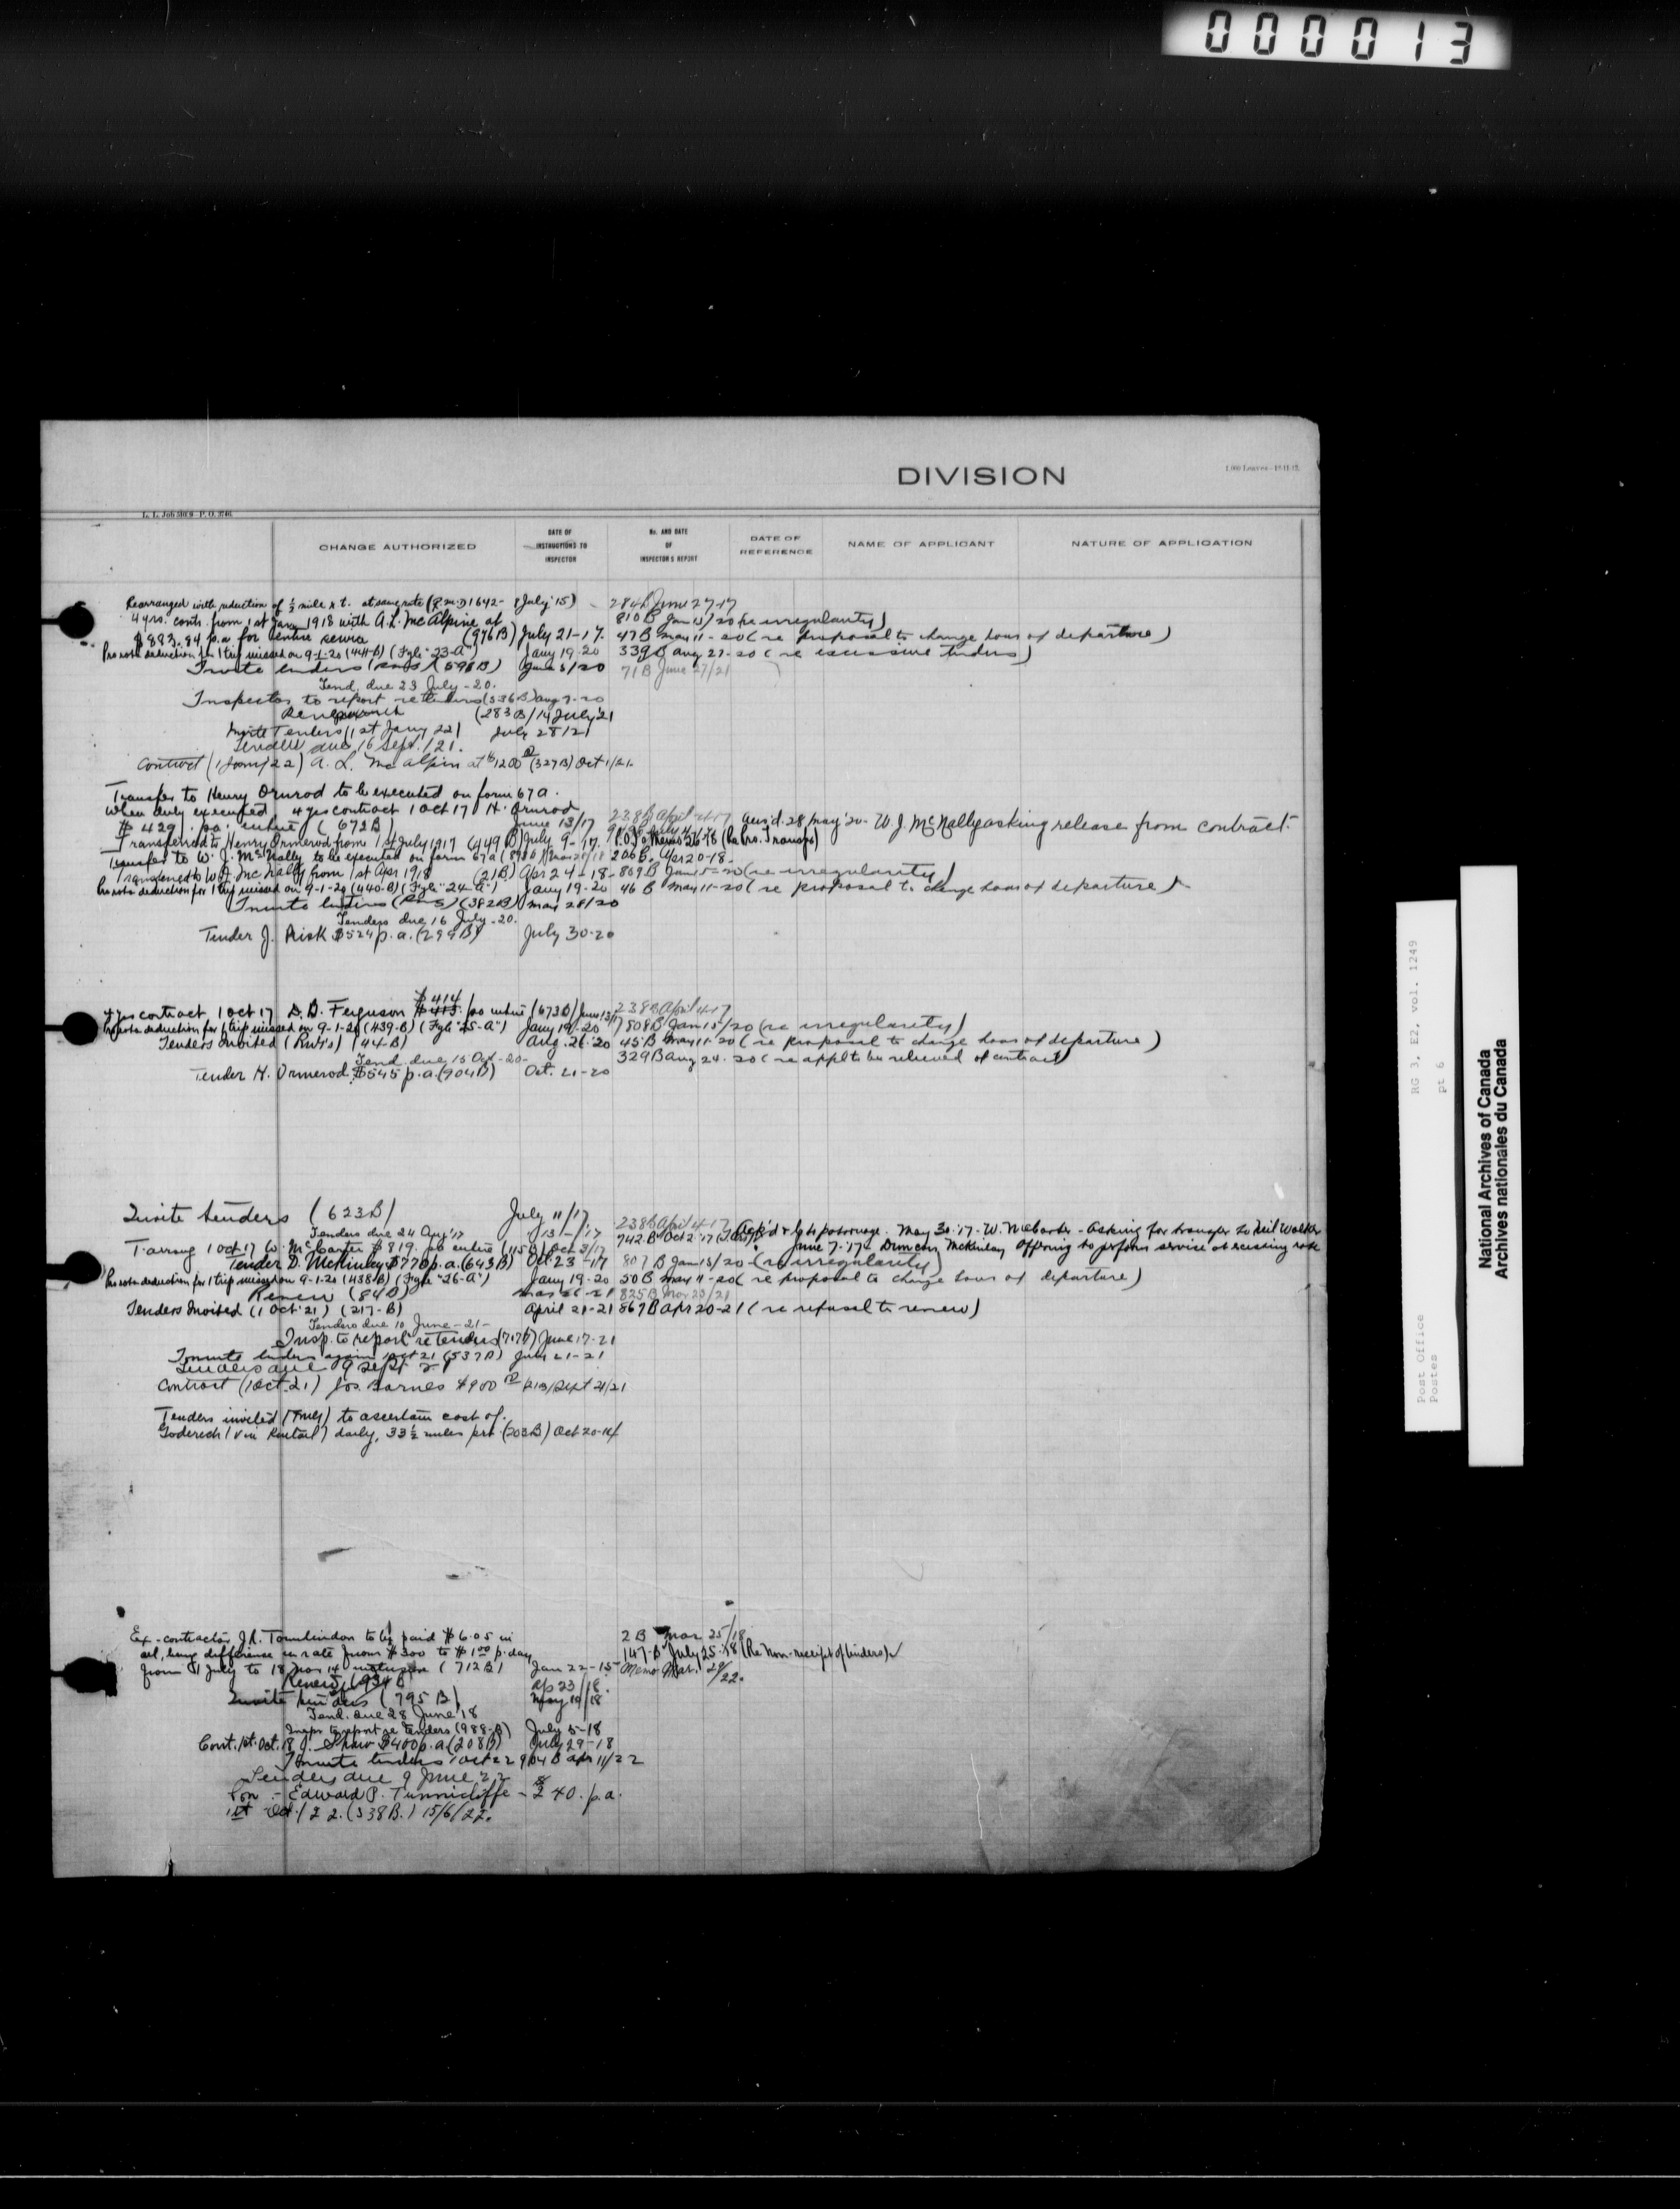 000013
DIVISION
1,000 Leaves—18-11-12.
L. L. Job 510 9 P. O. 3746.
CHANGE AUTHORIZED
DATE OF INSTRUCTIONS TO INSPECTOR
No. AND DATE OF INSPECTOR'S REPORT
DATE OF REFERENCE
NAME OF APPLICANT
NATURE OF APPLICATION
Rearranged with reduction of ½ mile r t. at same rate (R.M.D 1642- 8 July '15) 284 B June 27-17
4 yrs. contr. from 1st Jany 1918 with A. L. McAlpine at 810 B Jan 15/20 (re irregularity)
$883.94 p.a for entire service (976B) July 21-17. 47 B May 11-20 (re proposal to change hour of departure)
Pro rata deduction for 1 trip missed on 9-1-20 (441-B) (Fyle "23-A") Jany 19-20 339 B Aug 27-20 (re excessive tenders)
Invite tenders (596B) June 5/20 71 B June 27/21
Tend. due 23 July-20.
Inspector to report re tenders (336B) Aug 7-20
(283B) 14 July '21
Invite Tenders (1st Jany 22) July 28/21
Tenders due 16 Sept./21.
Contract (1 Jany 22) A. L. McAlpin at $1200 (327B) Oct 1/21.
Transfer to Henry Ormrod to be executed on form 67a.
When duly executed 4 yrs contract 1 Oct 17 H. Ormrod 238 B April 4-17
$429. p.a. entire (672B) June 13/17 Ans'd. 28 May '20- W. J. McNally asking release from contract.
Transferred to Henry Ormerod from 1st July 1917 (449B) July 9-17.
Transfer to W. J. McNally to be executed on form 67a 206 B. Apr 20-18.
Transferred to W. J. McNally from 1st Apr 1918 (21B) Apr 24-18- 809 B Jan 15-20 (re irregularity)
Pro rata deduction for 1 trip missed on 9-1-20 (440-B) (Fyle "24-A") Jany 19-20 46 B May 11-20 (re proposal to change hour of departure)
Invite tenders (382B) May 28/20
Tenders due 16 July-20.
Tender J. Risk $524 p.a. (299B) July 30-20
$414
4 yrs contract 1 Oct 17 D. D. Ferguson $413. p.a entire (673B) June 13/17 238 B April 4-17
Pro rata deduction for 1 trip missed on 9-1-20 (439-B) (Fyle "25-A") Jany 19-20 808 B Jan 15/20 (re irregularity)
Tenders Invited (44-B) Aug. 26-20 45 B May 11-20 (re proposal to change hour of departure)
Tend. due 15 Oct-20- 329 B Aug 24-20 (re applt to be relieved of contract)
Tender H. Ormerod $545 p.a. (904B) Oct. 21-20
Invite tenders (623B) July 11/17 238 B April 4-17
Tenders due 24 Aug '17 Ack'd & ref to patronage. May 30-'17- W. McCarter - Asking for transfer to Neil Walker
Tarrang 1 Oct 17 W. McCarter $819. p.a entire (115B) Oct 3/17 742 B Oct 2-'17 June 7-'17- Duncan McKinlay Offering to perform service at existing rate
Tender D. McKinley $770 p.a. (643B) Oct. 23-17 807 B Jan 15/20- (re irregularity)
Pro rata deduction for 1 trip missed on 9-1-20 (438B) (Fyle "26-A") Jany 19-20 50 B May 11-20 (re proposal to change hour of departure)
Renew (84B) Mar 26-21 825 B Mar 23/21
Tenders Invited (1 Oct '21) (217-B) April 21-21 867 B Apr 20-21 (re refusal to renew)
Tenders due 10 June-21-
Insp. to report re tenders (717B) June 17-21
Invite tenders again 1 Oct 21 (537B) June 21-21
Tenders due 9 Sept 21
Contract (1 Oct. 21) Jos. Barnes $900 Sept 21/21
Tenders invited to ascertain cost of
Goderich (via Kintail) daily, 33½ miles prt. (202B) Oct 20-14
Ex-contractor J. R. Tomlindon to be paid $6.05 in 2 B Mar 25/18
all, being difference in rate from $300 to $1.00 p. day 147-B July 25-18 (Re Non-receipt of tenders)
from 1 July to 18 Nov 14 inclusive (712B) Jan 22-15- Memo Mar. 29/22.
Renew (934B) Ap 23/18.
Invite tenders (795B) May 10/18
Tend. due 28 June '18
Inspr to report re tenders (988-B) July 5-18
Cont. 1st. Oct. 18 J. Shaw $400 p.a (208B) July 29-18
Invite tenders 1 Oct 22 904 B Apr 11/22
Tenders due 9 June 22
Con - Edward P. Tunnicliffe - $240. p.a.
1st Oct/22. (338B.) 15/6/22.
RG 3, E2, vol. 1249
pt 6
Post Office
Postes
National Archives of Canada
Archives nationales du Canada